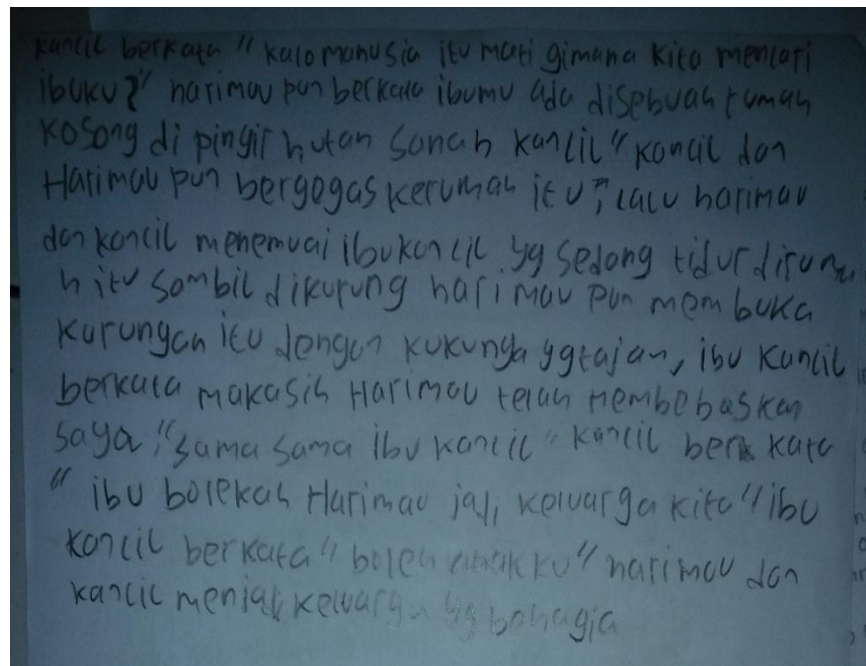 kancil berkata " kalo manusia itu mati gimana kita mencari
ibuku?" harimau pun berkata ibumu ada disebuah rumah
kosong di pingir hutan sanah kancil " kancil dan
Harimau pun bergegas kerumah itu, lalu harimau
dan kancil menemuai ibu kancil yg sedang tidur diruma
h itu sambil dikurung harimau pun membuka
kurungan itu dengan kukunya ygtajam, ibu kancil
berkata makasih Harimau telah Membebaskan
saya "sama sama ibu kancil" kancil ber kata
" ibu bolekah Harimau jadi keluarga kita" ibu
kancil berkata " boleh anakku" harimau dan
kancil menjadi keluarga yg bahagia